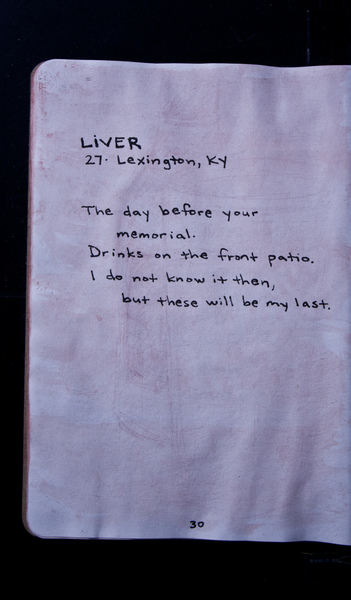 LiVER
27. Lexington, KY
The day before your
memorial.
Drinks on the front patio.
I do not know it then,
but these will be my last.
30